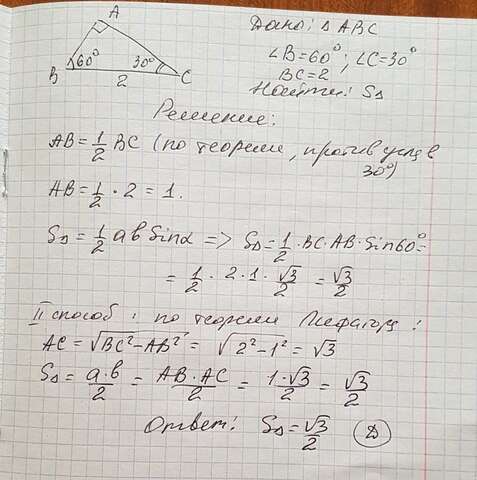 A
B 60° 30° C
2
Дано: Δ ABC
∠B=60°; ∠C=30°
BC=2
Найти: SΔ
Решение:
AB = 1/2 BC (по теореме, против угла в 30°)
AB = 1/2 · 2 = 1.
SΔ = 1/2 ab Sinα => SΔ = 1/2 · BC · AB · Sin60° =
= 1/2 · 2 · 1 · √3/2 = √3/2
II способ: по теореме Пифагора:
AC = √BC²−AB² = √2²−1² = √3
SΔ = a·b/2 = AB·AC/2 = 1·√3/2 = √3/2
Ответ: SΔ = √3/2 (Д)